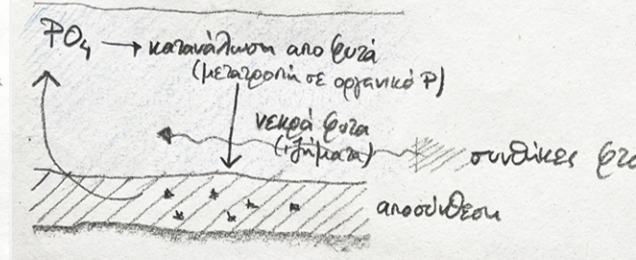 PO₄ → κατανάλωση από φυτά
(μετατροπή σε οργανικό P)
νεκρά φυτα
(ιζήματα)
συνθήκες
αποσύνθεση